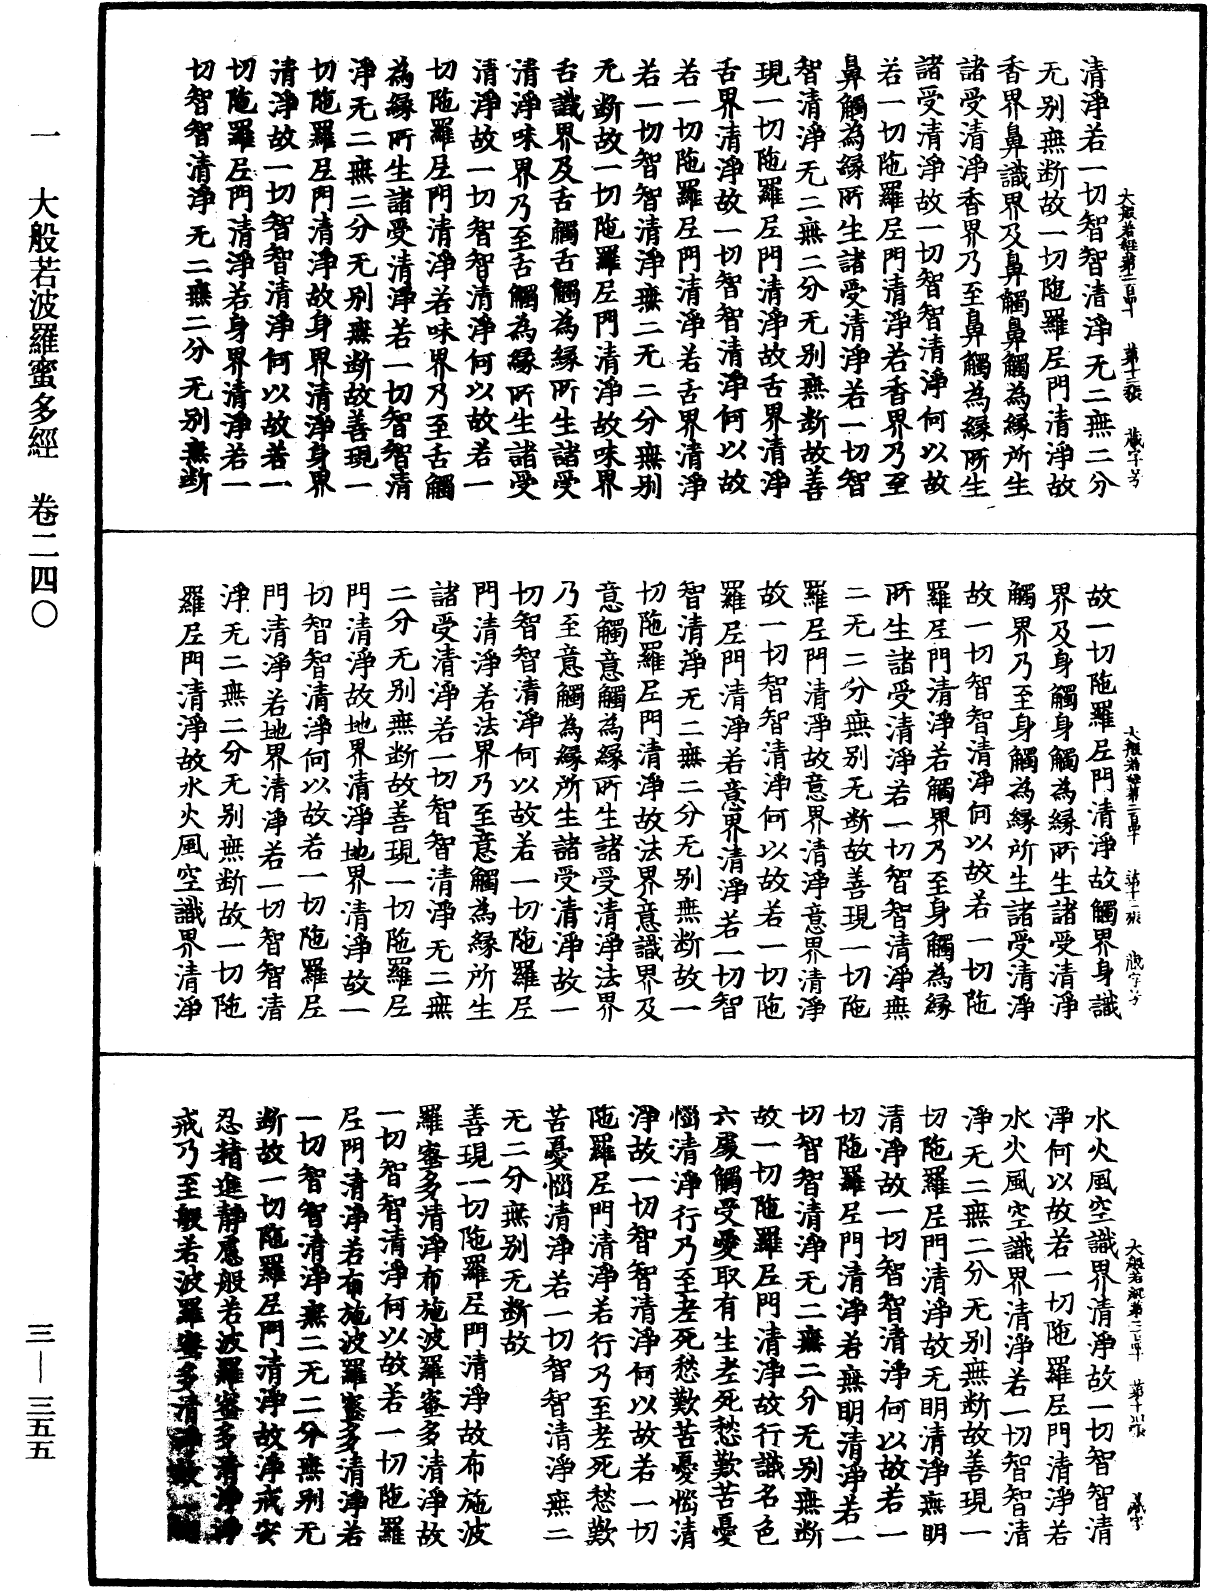 清淨若一切智智清淨无二無二分
无别無断故一切陁羅尼門清淨故
香界鼻識界及鼻觸鼻觸為縁所生
諸受清淨香界乃至鼻觸為縁所生
諸受清淨故一切智智清淨何以故
若一切陁羅尼門清淨若香界乃至
鼻觸為縁所生諸受清淨若一切智
智清淨无二無二分无别無断故善
現一切陁羅尼門清淨故舌界清淨
舌界清淨故一切智智清淨何以故
若一切陁羅尼門清淨若舌界清淨
若一切智智清淨無二无二分無别
无断故一切陁羅尼門清淨故味界
舌識界及舌觸舌觸為縁所生諸受
清淨味界乃至舌觸為縁所生諸受
清淨故一切智智清淨何以故若一
切陁羅尼門清淨若味界乃至舌觸
為縁所生諸受清淨若一切智智清
淨无二無二分无别無断故善現一
切陁羅尼門清淨故身界清淨身界
清淨故一切智智清淨何以故若一
切陁羅尼門清淨若身界清淨若一
切智智清淨无二無二分无别無断
故一切陁羅尼門清淨故觸界身識
界及身觸身觸為縁所生諸受清淨
觸界乃至身觸為縁所生諸受清淨
故一切智智清淨何以故若一切陁
羅尼門清淨若觸界乃至身觸為縁
所生諸受清淨若一切智智清淨無
二无二分無别无断故善現一切陁
羅尼門清淨故意界清淨意界清淨
故一切智智清淨何以故若一切陁
羅尼門清淨若意界清淨若一切智
智清淨无二無二分无别無断故一
切陁羅尼門清淨故法界意識界及
意觸意觸為縁所生諸受清淨法界
乃至意觸為縁所生諸受清淨故一
切智智清淨何以故若一切陁羅尼
門清淨若法界乃至意觸為縁所生
諸受清淨若一切智智清淨无二無
二分无别無断故善現一切陁羅尼
門清淨故地界清淨地界清淨故一
切智智清淨何以故若一切陁羅尼
門清淨若地界清淨若一切智智清
淨无二無二分无别無断故一切陁
羅尼門清淨故水火風空識界清淨
水火風空識界清淨故一切智智清
淨何以故若一切陁羅尼門清淨若
水火風空識界清淨若一切智智清
淨无二無二分无别無断故善現一
切陁羅尼門清淨故无明清淨無明
清淨故一切智智清淨何以故若一
切陁羅尼門清淨若無明清淨若一
切智智清淨无二無二分无别無断
故一切陁羅尼門清淨故行識名色
六處觸受愛取有生老死愁歎苦憂
惱清淨行乃至老死愁歎苦憂惱清
淨故一切智智清淨何以故若一切
陁羅尼門清淨若行乃至老死愁歎
苦憂惱清淨若一切智智清淨無二
无二分無别无断故
善現一切陁羅尼門清淨故布施波
羅蜜多清淨布施波羅蜜多清淨故
一切智智清淨何以故若一切陁羅
尼門清淨若布施波羅蜜多清淨若
一切智智清淨無二无二分無别无
断故一切陁羅尼門清淨故淨戒安
忍精進靜慮般若波羅蜜多清淨淨
戒乃至般若波羅蜜多清淨故一切
一 大般若波羅蜜多經 卷二四〇
三—三五五